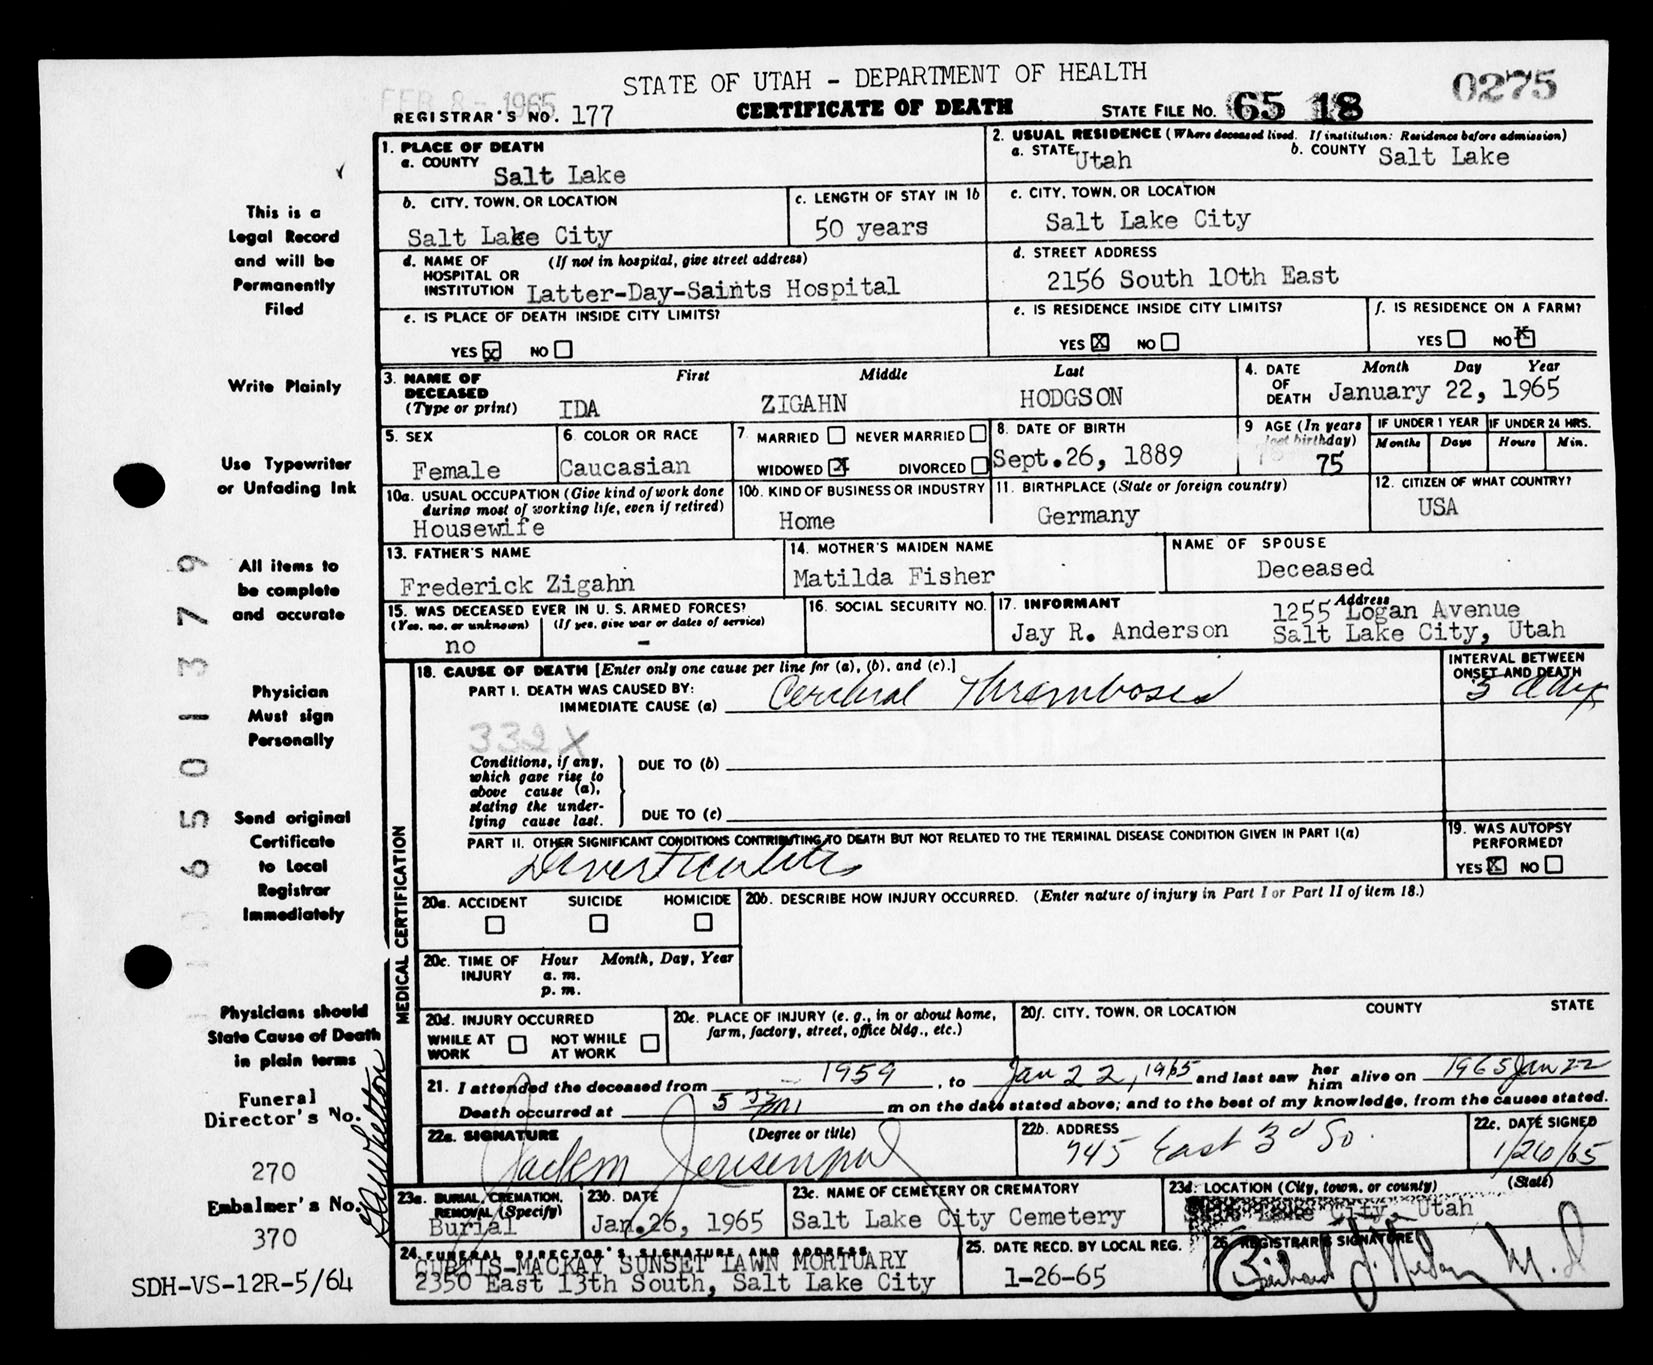 STATE OF UTAH - DEPARTMENT OF HEALTH
0275
FEB 8 - 1965
REGISTRAR'S NO. 177
CERTIFICATE OF DEATH
STATE FILE NO. 65 18
1. PLACE OF DEATH
a. COUNTY
Salt Lake
2. USUAL RESIDENCE (Where deceased lived. If institution: Residence before admission)
a. STATE Utah
b. COUNTY Salt Lake
b. CITY, TOWN, OR LOCATION
Salt Lake City
c. LENGTH OF STAY IN 1b
50 years
c. CITY, TOWN, OR LOCATION
Salt Lake City
d. NAME OF HOSPITAL OR INSTITUTION (If not in hospital, give street address)
Latter-Day-Saints Hospital
d. STREET ADDRESS
2156 South 10th East
e. IS PLACE OF DEATH INSIDE CITY LIMITS?
YES X NO
e. IS RESIDENCE INSIDE CITY LIMITS?
YES X NO
f. IS RESIDENCE ON A FARM?
YES NO X
3. NAME OF DECEASED (Type or print)
First Middle Last
IDA ZIGAHN HODGSON
4. DATE OF DEATH
Month Day Year
January 22, 1965
5. SEX
Female
6. COLOR OR RACE
Caucasian
7. MARRIED NEVER MARRIED
WIDOWED X DIVORCED
8. DATE OF BIRTH
Sept.26, 1889
9 AGE (In years last birthday)
75
IF UNDER 1 YEAR
Months Days
IF UNDER 24 HRS.
Hours Min.
10a. USUAL OCCUPATION (Give kind of work done during most of working life, even if retired)
Housewife
10b. KIND OF BUSINESS OR INDUSTRY
Home
11. BIRTHPLACE (State or foreign country)
Germany
12. CITIZEN OF WHAT COUNTRY?
USA
13. FATHER'S NAME
Frederick Zigahn
14. MOTHER'S MAIDEN NAME
Matilda Fisher
NAME OF SPOUSE
Deceased
15. WAS DECEASED EVER IN U. S. ARMED FORCES?
(Yes, no, or unknown) (If yes, give war or dates of service)
no -
16. SOCIAL SECURITY NO.
17. INFORMANT
Jay R. Anderson
Address
1255 Logan Avenue
Salt Lake City, Utah
MEDICAL CERTIFICATION
18. CAUSE OF DEATH [Enter only one cause per line for (a), (b), and (c).]
PART I. DEATH WAS CAUSED BY:
IMMEDIATE CAUSE (a) Cerebral Thrombosis
INTERVAL BETWEEN ONSET AND DEATH
3 days
332X
Conditions, if any, which gave rise to above cause (a), stating the underlying cause last.
DUE TO (b)
DUE TO (c)
PART II. OTHER SIGNIFICANT CONDITIONS CONTRIBUTING TO DEATH BUT NOT RELATED TO THE TERMINAL DISEASE CONDITION GIVEN IN PART I(a)
Diverticulitis
19. WAS AUTOPSY PERFORMED?
YES X NO
20a. ACCIDENT SUICIDE HOMICIDE
20b. DESCRIBE HOW INJURY OCCURRED. (Enter nature of injury in Part I or Part II of item 18.)
20c. TIME OF INJURY Hour Month, Day, Year
a. m.
p. m.
20d. INJURY OCCURRED
WHILE AT WORK NOT WHILE AT WORK
20e. PLACE OF INJURY (e. g., in or about home, farm, factory, street, office bldg., etc.)
20f. CITY, TOWN, OR LOCATION COUNTY STATE
21. I attended the deceased from 1959, to Jan 22, 1965 and last saw her him alive on 1965 Jan 22
Death occurred at 5 m on the date stated above; and to the best of my knowledge, from the causes stated.
22a. SIGNATURE (Degree or title)
22b. ADDRESS
745 East 3rd So.
22c. DATE SIGNED
1/26/65
23a. BURIAL, CREMATION, REMOVAL (Specify)
Burial
23b. DATE
Jan.26, 1965
23c. NAME OF CEMETERY OR CREMATORY
Salt Lake City Cemetery
23d. LOCATION (City, town, or county) (State)
Salt Lake City, Utah
24. FUNERAL DIRECTOR'S SIGNATURE AND ADDRESS
CURTIS-MACKAY SUNSET LAWN MORTUARY
2350 East 13th South, Salt Lake City
25. DATE RECD. BY LOCAL REG.
1-26-65
26. REGISTRAR'S SIGNATURE
This is a
Legal Record
and will be
Permanently
Filed
Write Plainly
Use Typewriter
or Unfading Ink
All items to
be complete
and accurate
Physician
Must sign
Personally
Send original
Certificate
to Local
Registrar
Immediately
Physicians should
State Cause of Death
in plain terms
Funeral
Director's No.
270
Embalmer's No.
370
SDH-VS-12R-5/64
6501379